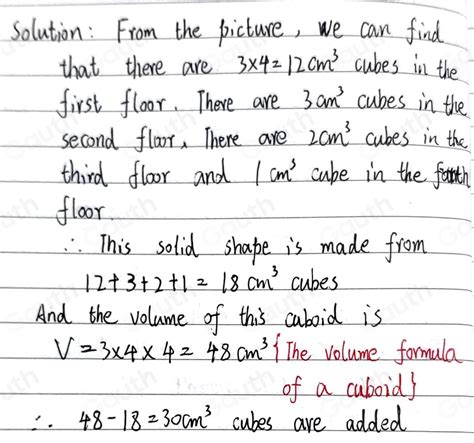 Solution: From the picture, we can find
that there are 3×4=12cm³ cubes in the
first floor. There are 3cm³ cubes in the
second floor. There are 2cm³ cubes in the
third floor and 1cm³ cube in the fourth
floor.
∴ This solid shape is made from
12+3+2+1=18cm³ cubes
And the volume of this cuboid is
V=3×4×4=48cm³ {The volume formula
of a cuboid}
∴ 48-18=30cm³ cubes are added